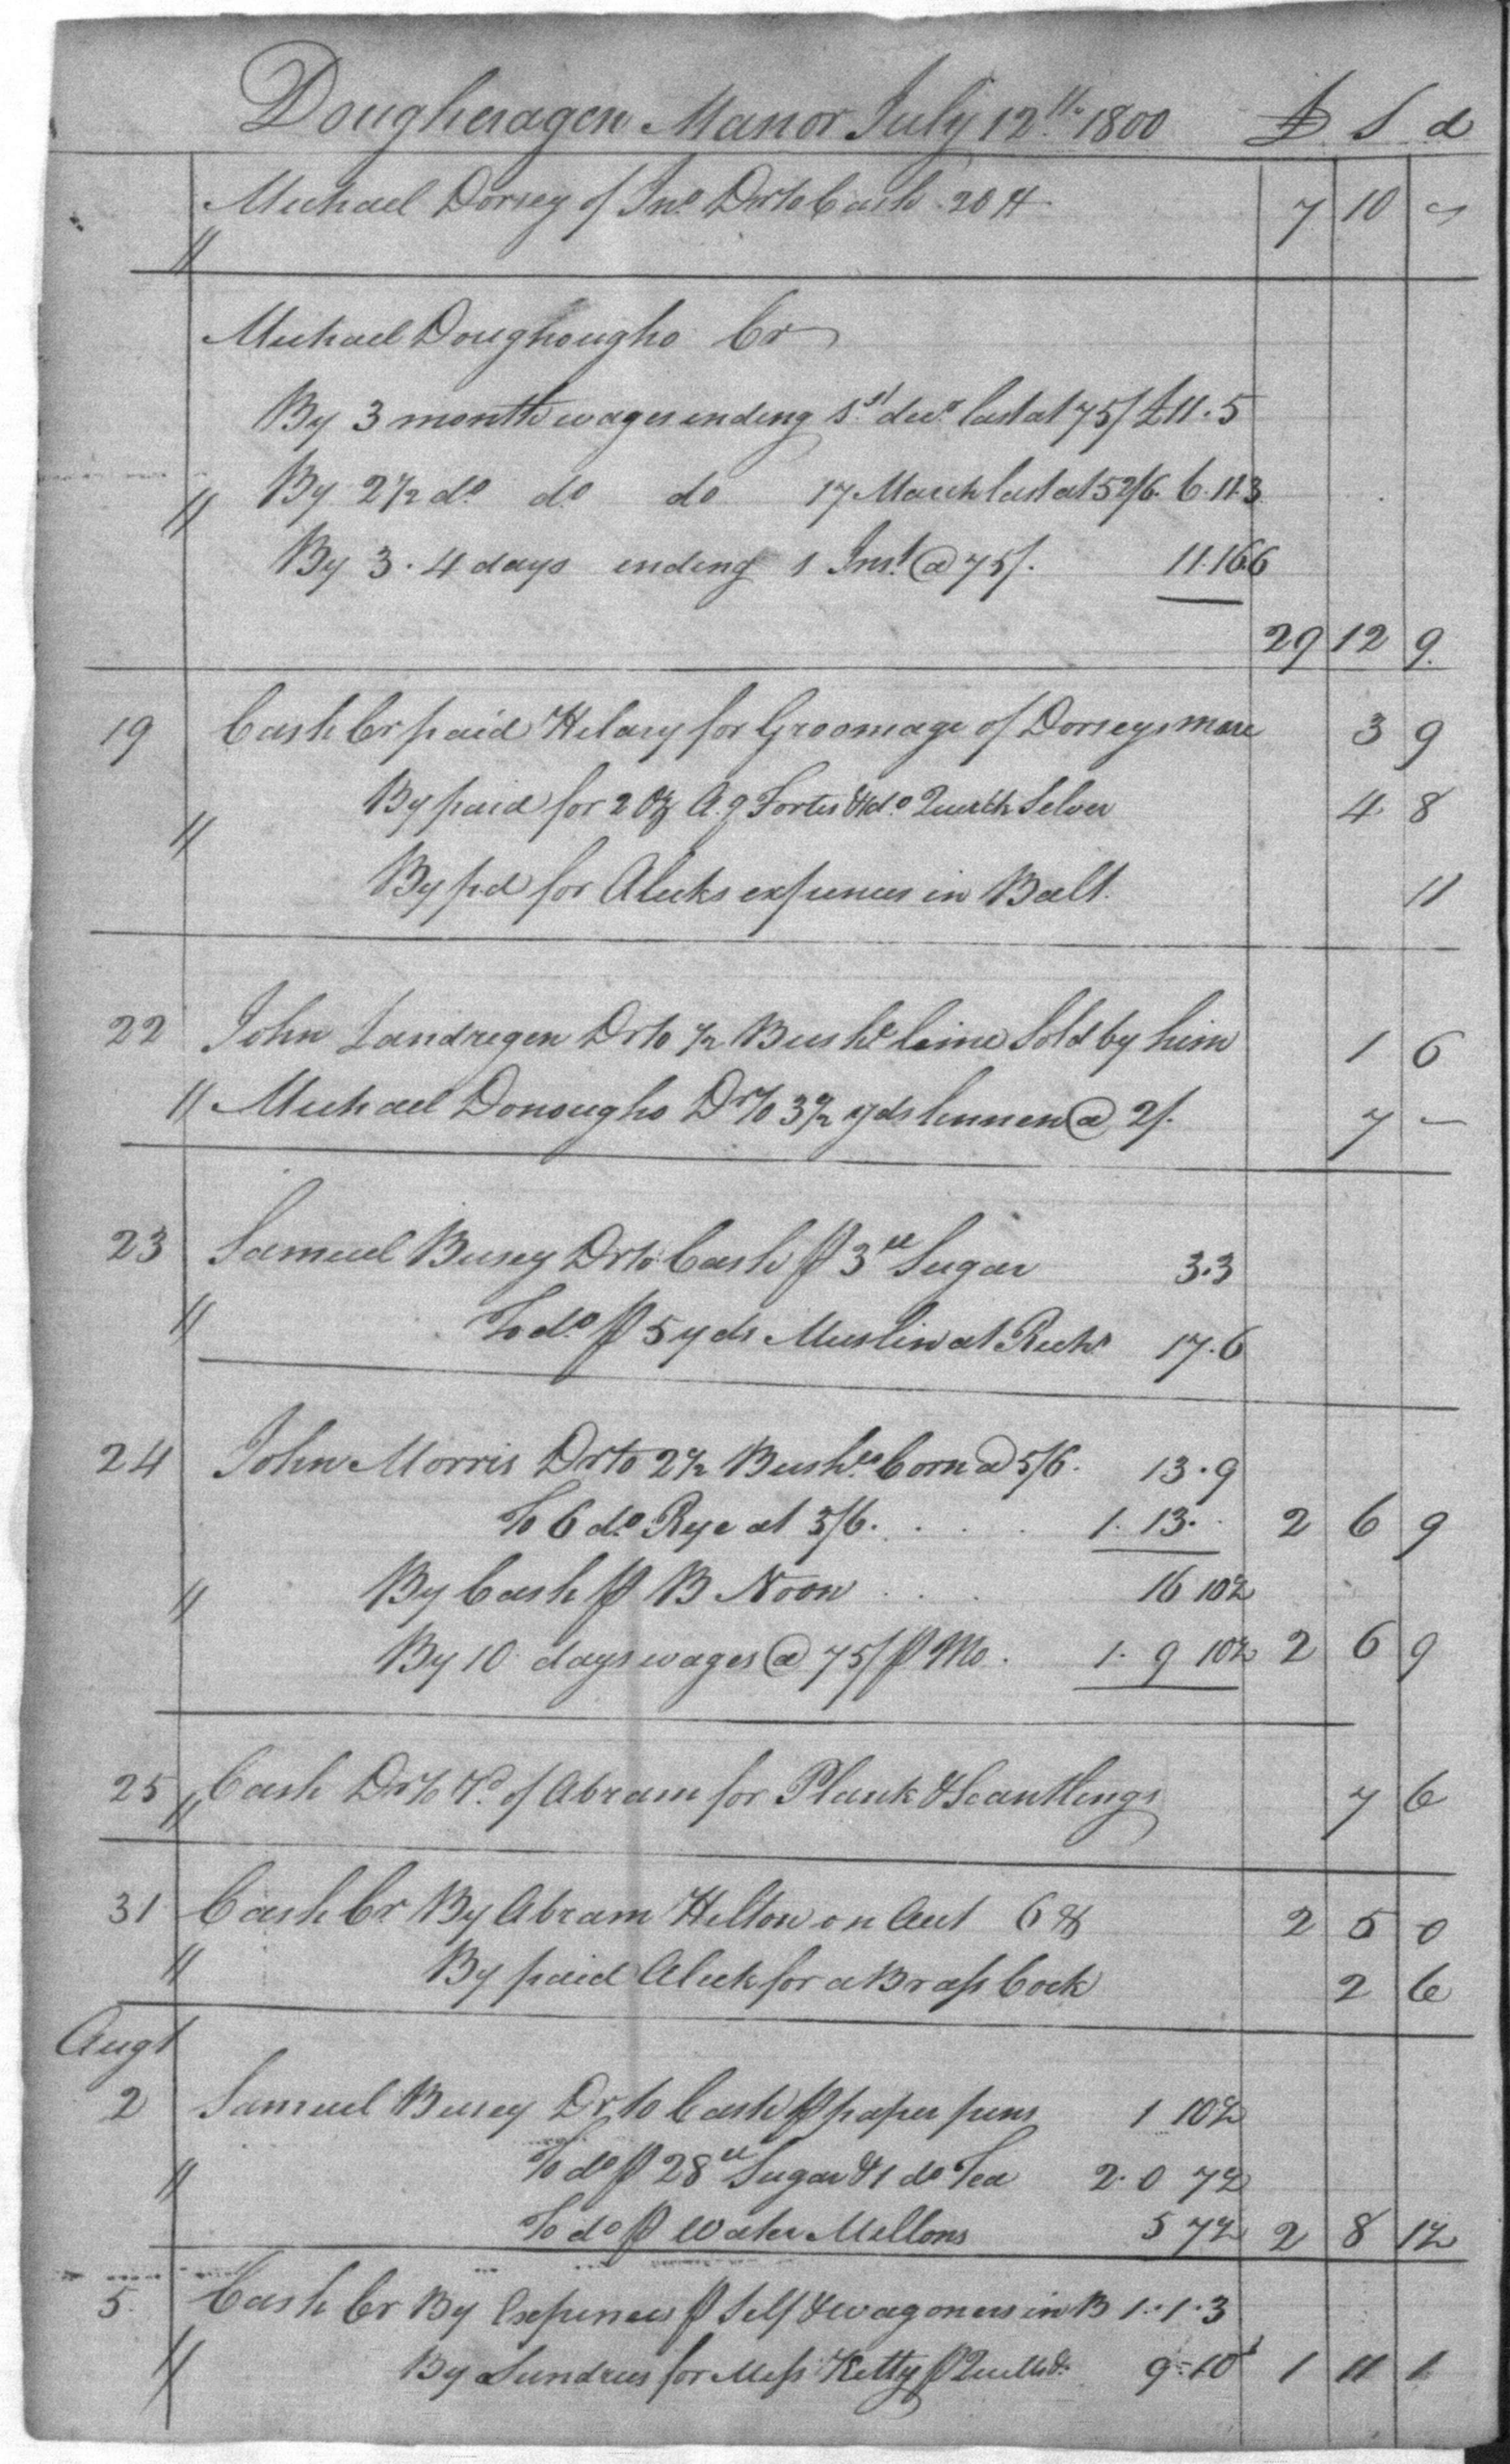 Dougheragen Manor July 12th 1800 £ S d
Michael Dorsey of Jno Dr to Cash 20 $ 7 10 -
"
Michael Doughougho Cr
By 3 month wages ending 1st decr last at 75/ £11.5
" By 2½ do do do 17 March last at 52/6. 6.11.3
By 3.4 days ending 1 Inst @ 75/. 11.16.6
29 12 9
19 Cash Cr paid Hilary for Groomage of Dorseys mare 3 9
" By paid for 2 oz A.q Fortis & 1 do Quick Silver 4 8
By pd for Alicks expences in Balt. 11
22 John Landregen Dr to ½ Bushl lime Sold by him 1 6
" Michael Donougho Dr to 3½ yds linnen @ 2/. 7 -
23 Samuel Busey Dr to Cash ⅌ 3 lb Sugar 3.3
" To do ⅌ 5 yds Muslin at Rechs 17.6
24 John Morris Dr to 2½ Bushls Corn @ 5/6. 13.9
To 6 do Rye at 5/6. . . . . 1.13. . 2 6 9
" By Cash ⅌ B Noon . . . 16 10½
By 10 days wages @ 75/ ⅌ Mo. 1. 9 10½ 2 6 9
25 " Cash Dr to rd of Abram for Plank & Scantlings 7 6
31 Cash Cr By Abram Hilton on Acct 6 $ 2 5 0
" By paid Alick for a Brass Cock 2 6
Augt
2 Samuel Busey Dr to Cash ⅌ paper pens 1 10½
" To do ⅌ 28 lb Sugar & 1 do Tea 2. 0 7½
To do ⅌ Water Mellons 5 7½ 2 8 1½
5. Cash Cr By Expences ⅌ Self & wagoners in B 1..1.3
" By Sundries for Miss Kitty ⅌ 9-10 1 11 1